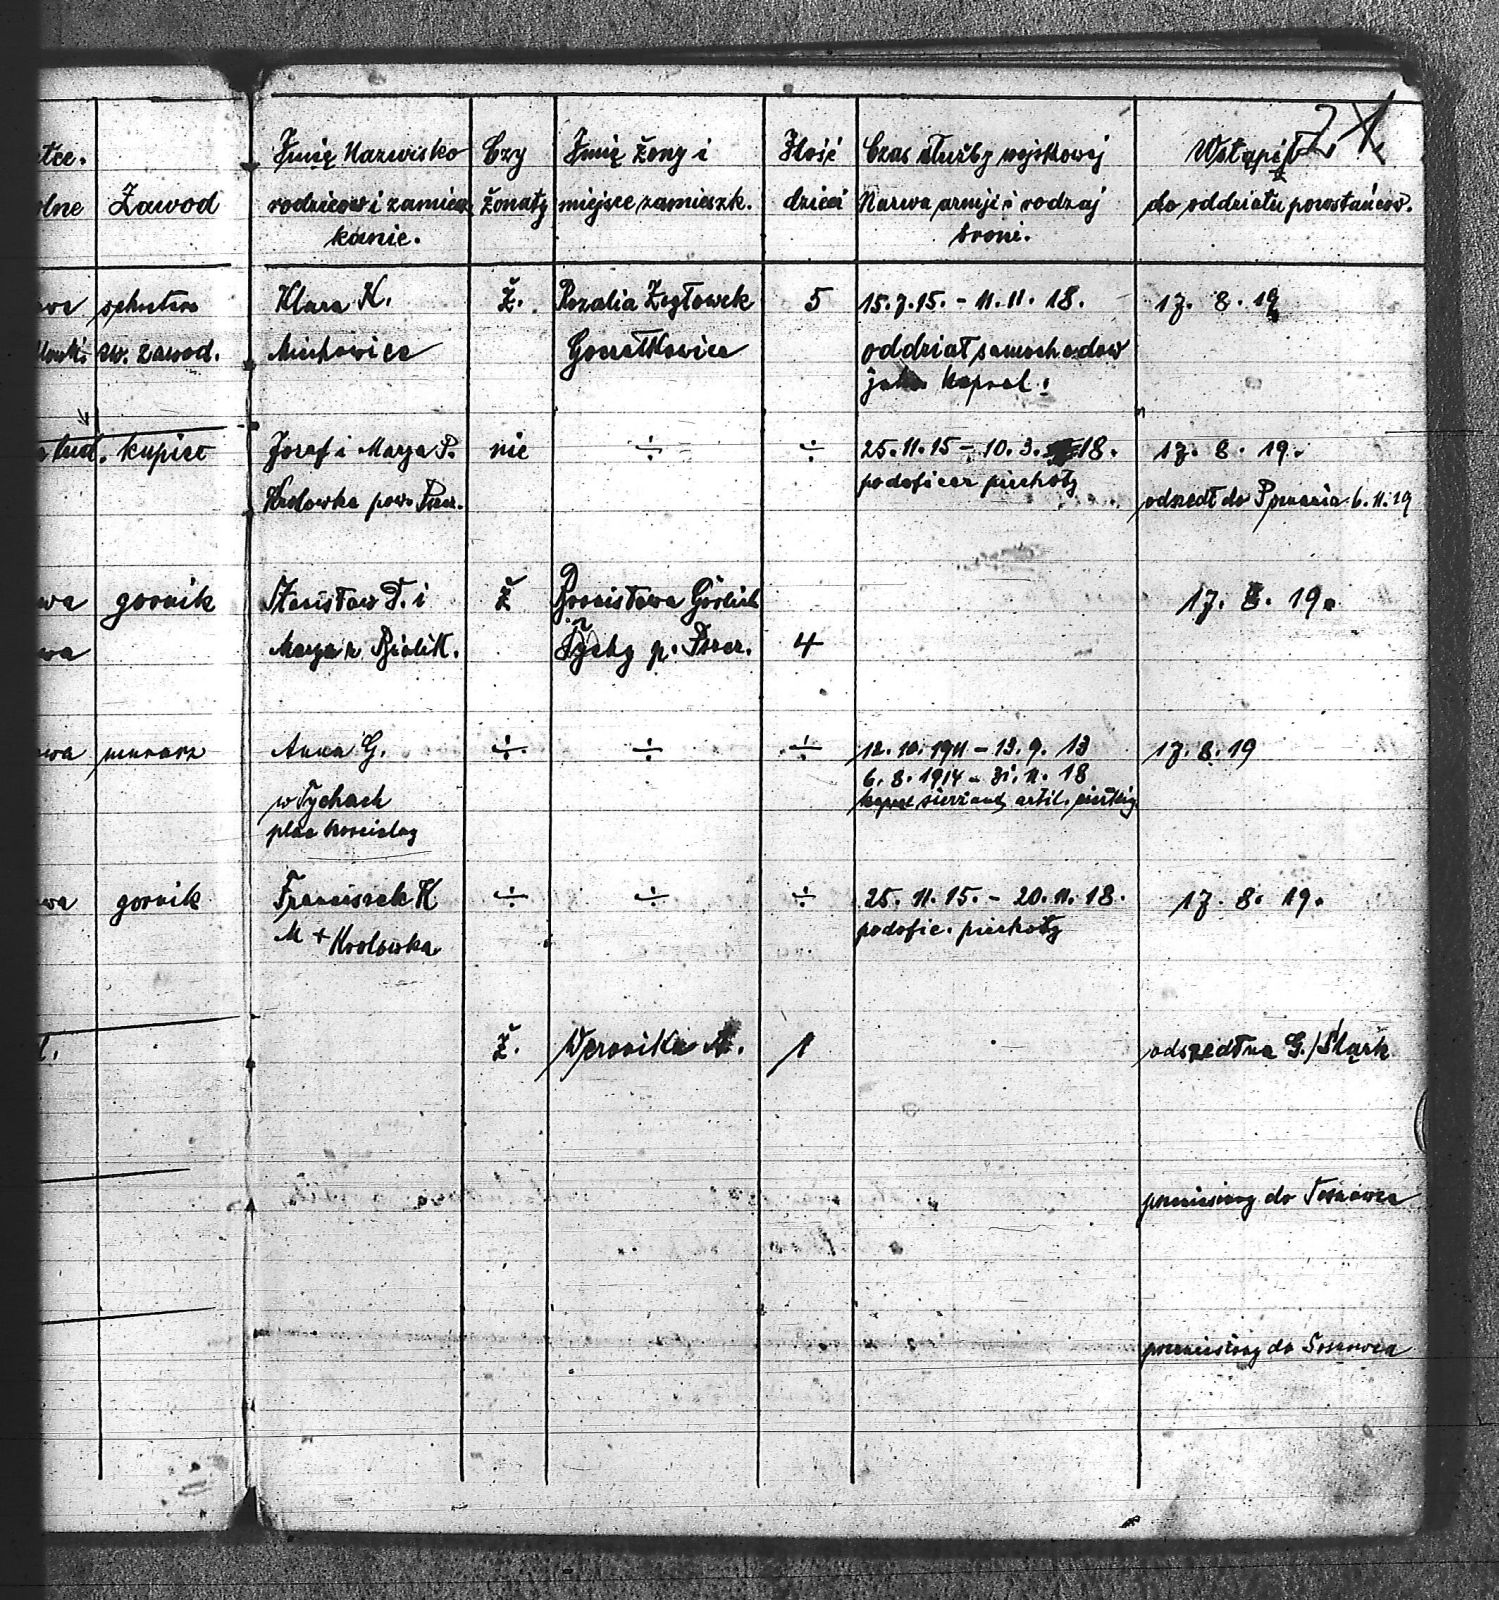 Zawod
Imię Nazwisko
rodzicow i zamiesz
kanie.
Czy
żonaty
Imię żony i
miejsce zamieszk.
Ilość
dzieci
Czas służby wojskowej
Nazwa armji i rodzaj
broni.
Wstąpił
do oddziału powstańców.
św. zawod.
Klara K.
Ż.
Rozalia
Goczałkowice
5
15.7.15. - 11.11.18.
oddział samochodow
jako kapral.
17. 8. 19
kupiec
Jozef i Marya P.
Krolowka pow. Pszcz.
nie
÷
÷
25.11.15 - 10.3. 18.
podoficer piechoty
17. 8. 19.
odszedł do Poznania 6.11.19
gornik
Stanisław D. i
Marya z. Bielik.
Ż
Bronisława Görlich
Tychy p. Pszcz.
4
17. 8. 19.
murarz
Anna G.
w Tychach
plac
÷
÷
÷
12.10.1911 - 13.9.13
6.8.1914 - 31.11.18
sierżant artil.
17.8.19
gornik
Franciszek K
M + Krolowka
÷
÷
÷
25.11.15. - 20.11.18.
podofic. piechoty
17. 8. 19.
Ż.
Weronika A.
1
odszedł na G./Śląsk
przeniesiony do Sosnowca
przeniesiony do Sosnowca